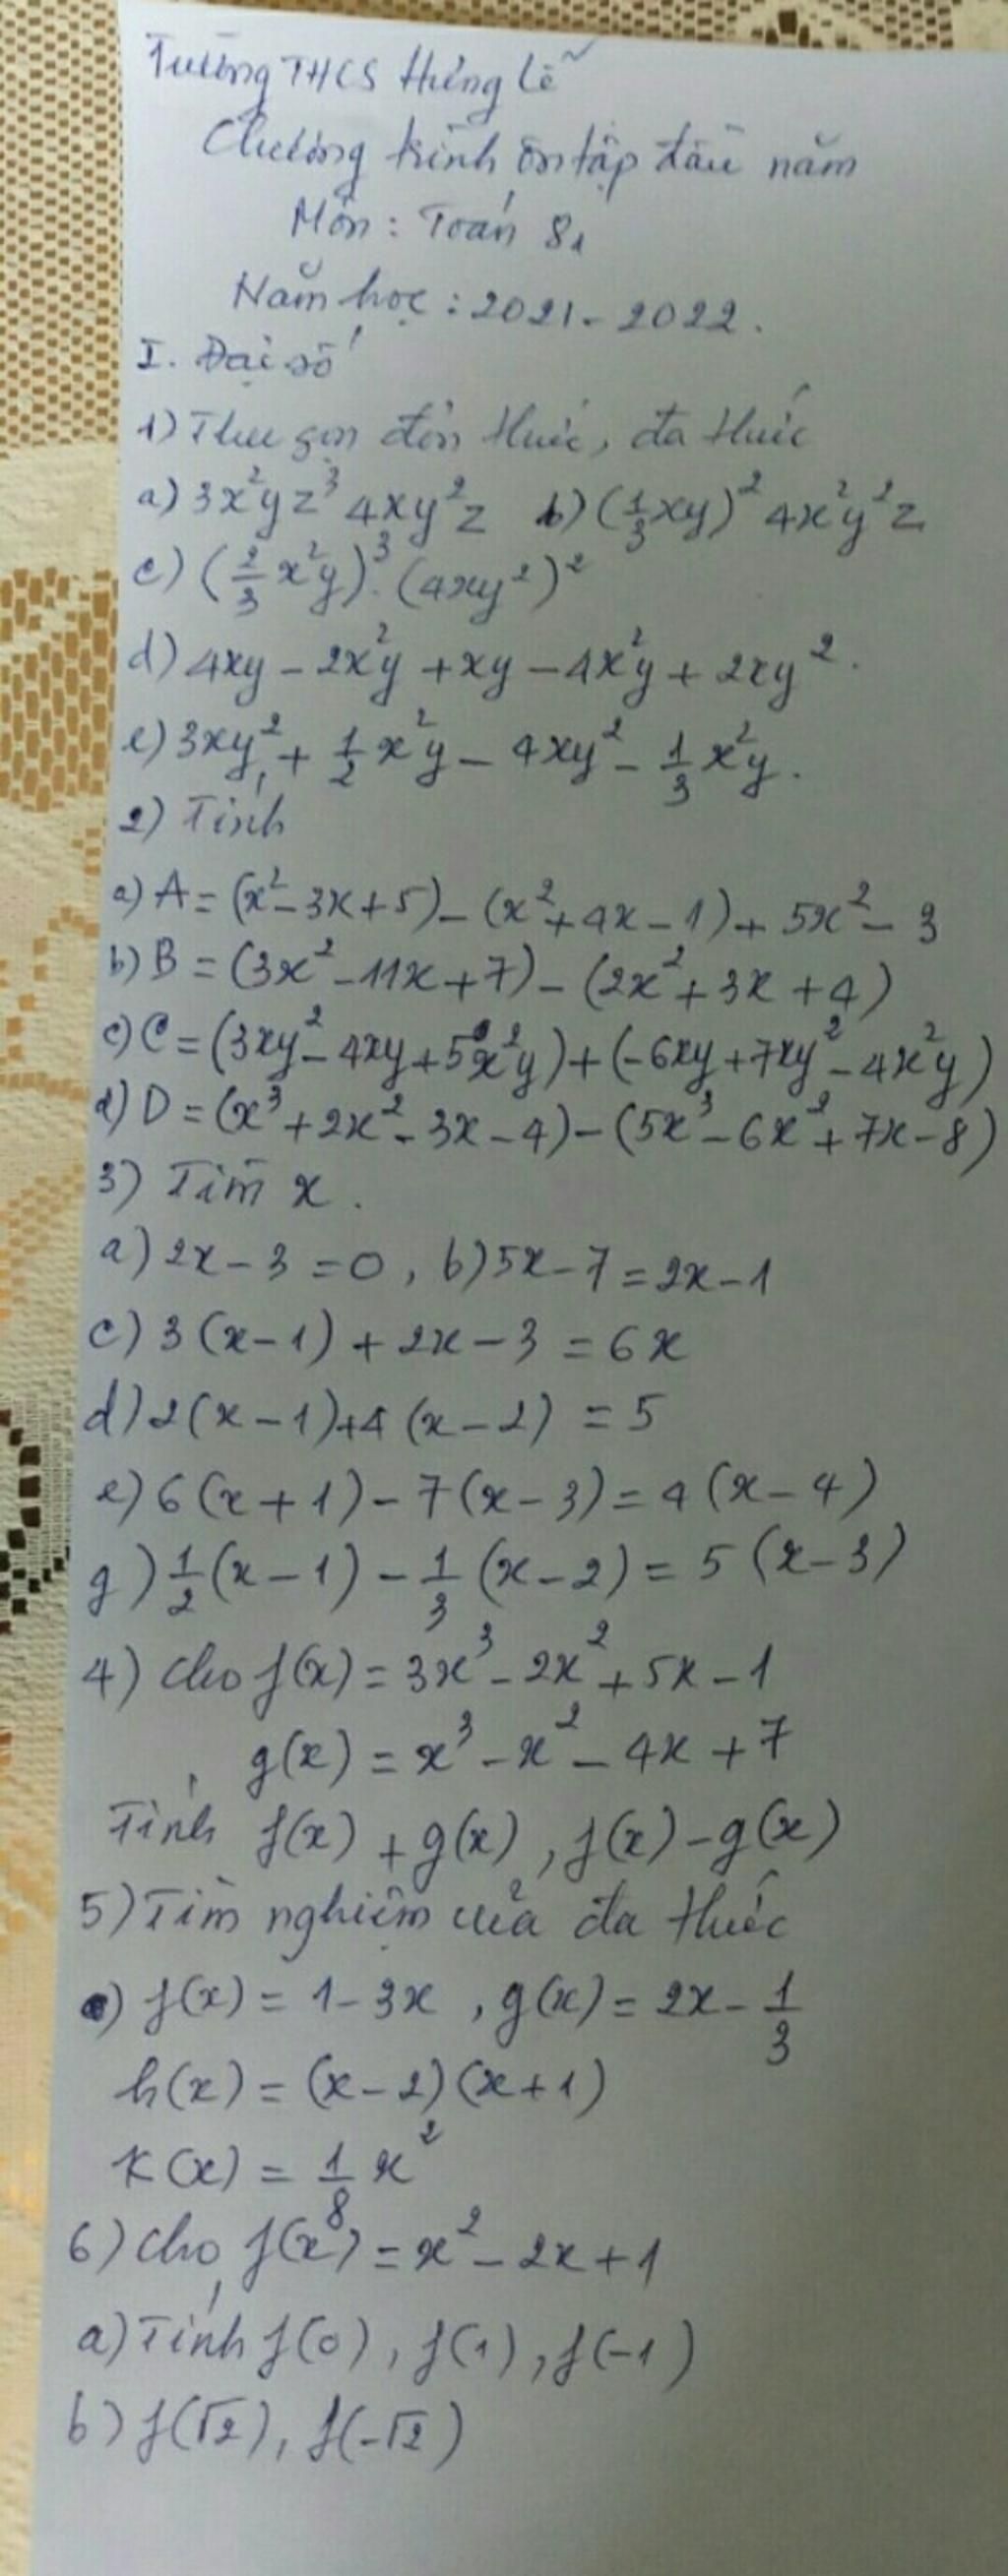 Trường THCS Hưng Lễ
Chương trình ôn tập đầu năm
Môn : Toán 8₁
Năm học : 2021 - 2022.
I. Đại số
1) Thu gọn đơn thức, đa thức
a) 3x²yz³ 4xy²z b) (1/3 xy)² 4x²y²z
c) (2/3 x²y)³. (4xy²)²
d) 4xy - 2x²y + xy - 4x²y + 2xy².
e) 3xy² + 1/2 x²y - 4xy² - 1/3 x²y.
2) Tính
a) A = (x² - 3x + 5) - (x² + 4x - 1) + 5x² - 3
b) B = (3x² - 11x + 7) - (2x² + 3x + 4)
c) C = (3xy² - 4xy + 5x²y) + (-6xy + 7xy² - 4x²y)
d) D = (x³ + 2x² - 3x - 4) - (5x³ - 6x² + 7x - 8)
3) Tìm x.
a) 2x - 3 = 0, b) 5x - 7 = 2x - 1
c) 3(x - 1) + 2x - 3 = 6x
d) 2(x - 1) + 4(x - 2) = 5
e) 6(x + 1) - 7(x - 3) = 4(x - 4)
g) 1/2 (x - 1) - 1/3 (x - 2) = 5(x - 3)
4) Cho f(x) = 3x³ - 2x² + 5x - 1
g(x) = x³ - x² - 4x + 7
Tính f(x) + g(x), f(x) - g(x)
5) Tìm nghiệm của đa thức
f(x) = 1 - 3x, g(x) = 2x - 1/3
h(x) = (x - 2)(x + 1)
K(x) = 1/8 x²
6) Cho f(x) = x² - 2x + 1
a) Tính f(0), f(1), f(-1)
b) f(√2), f(-√2)